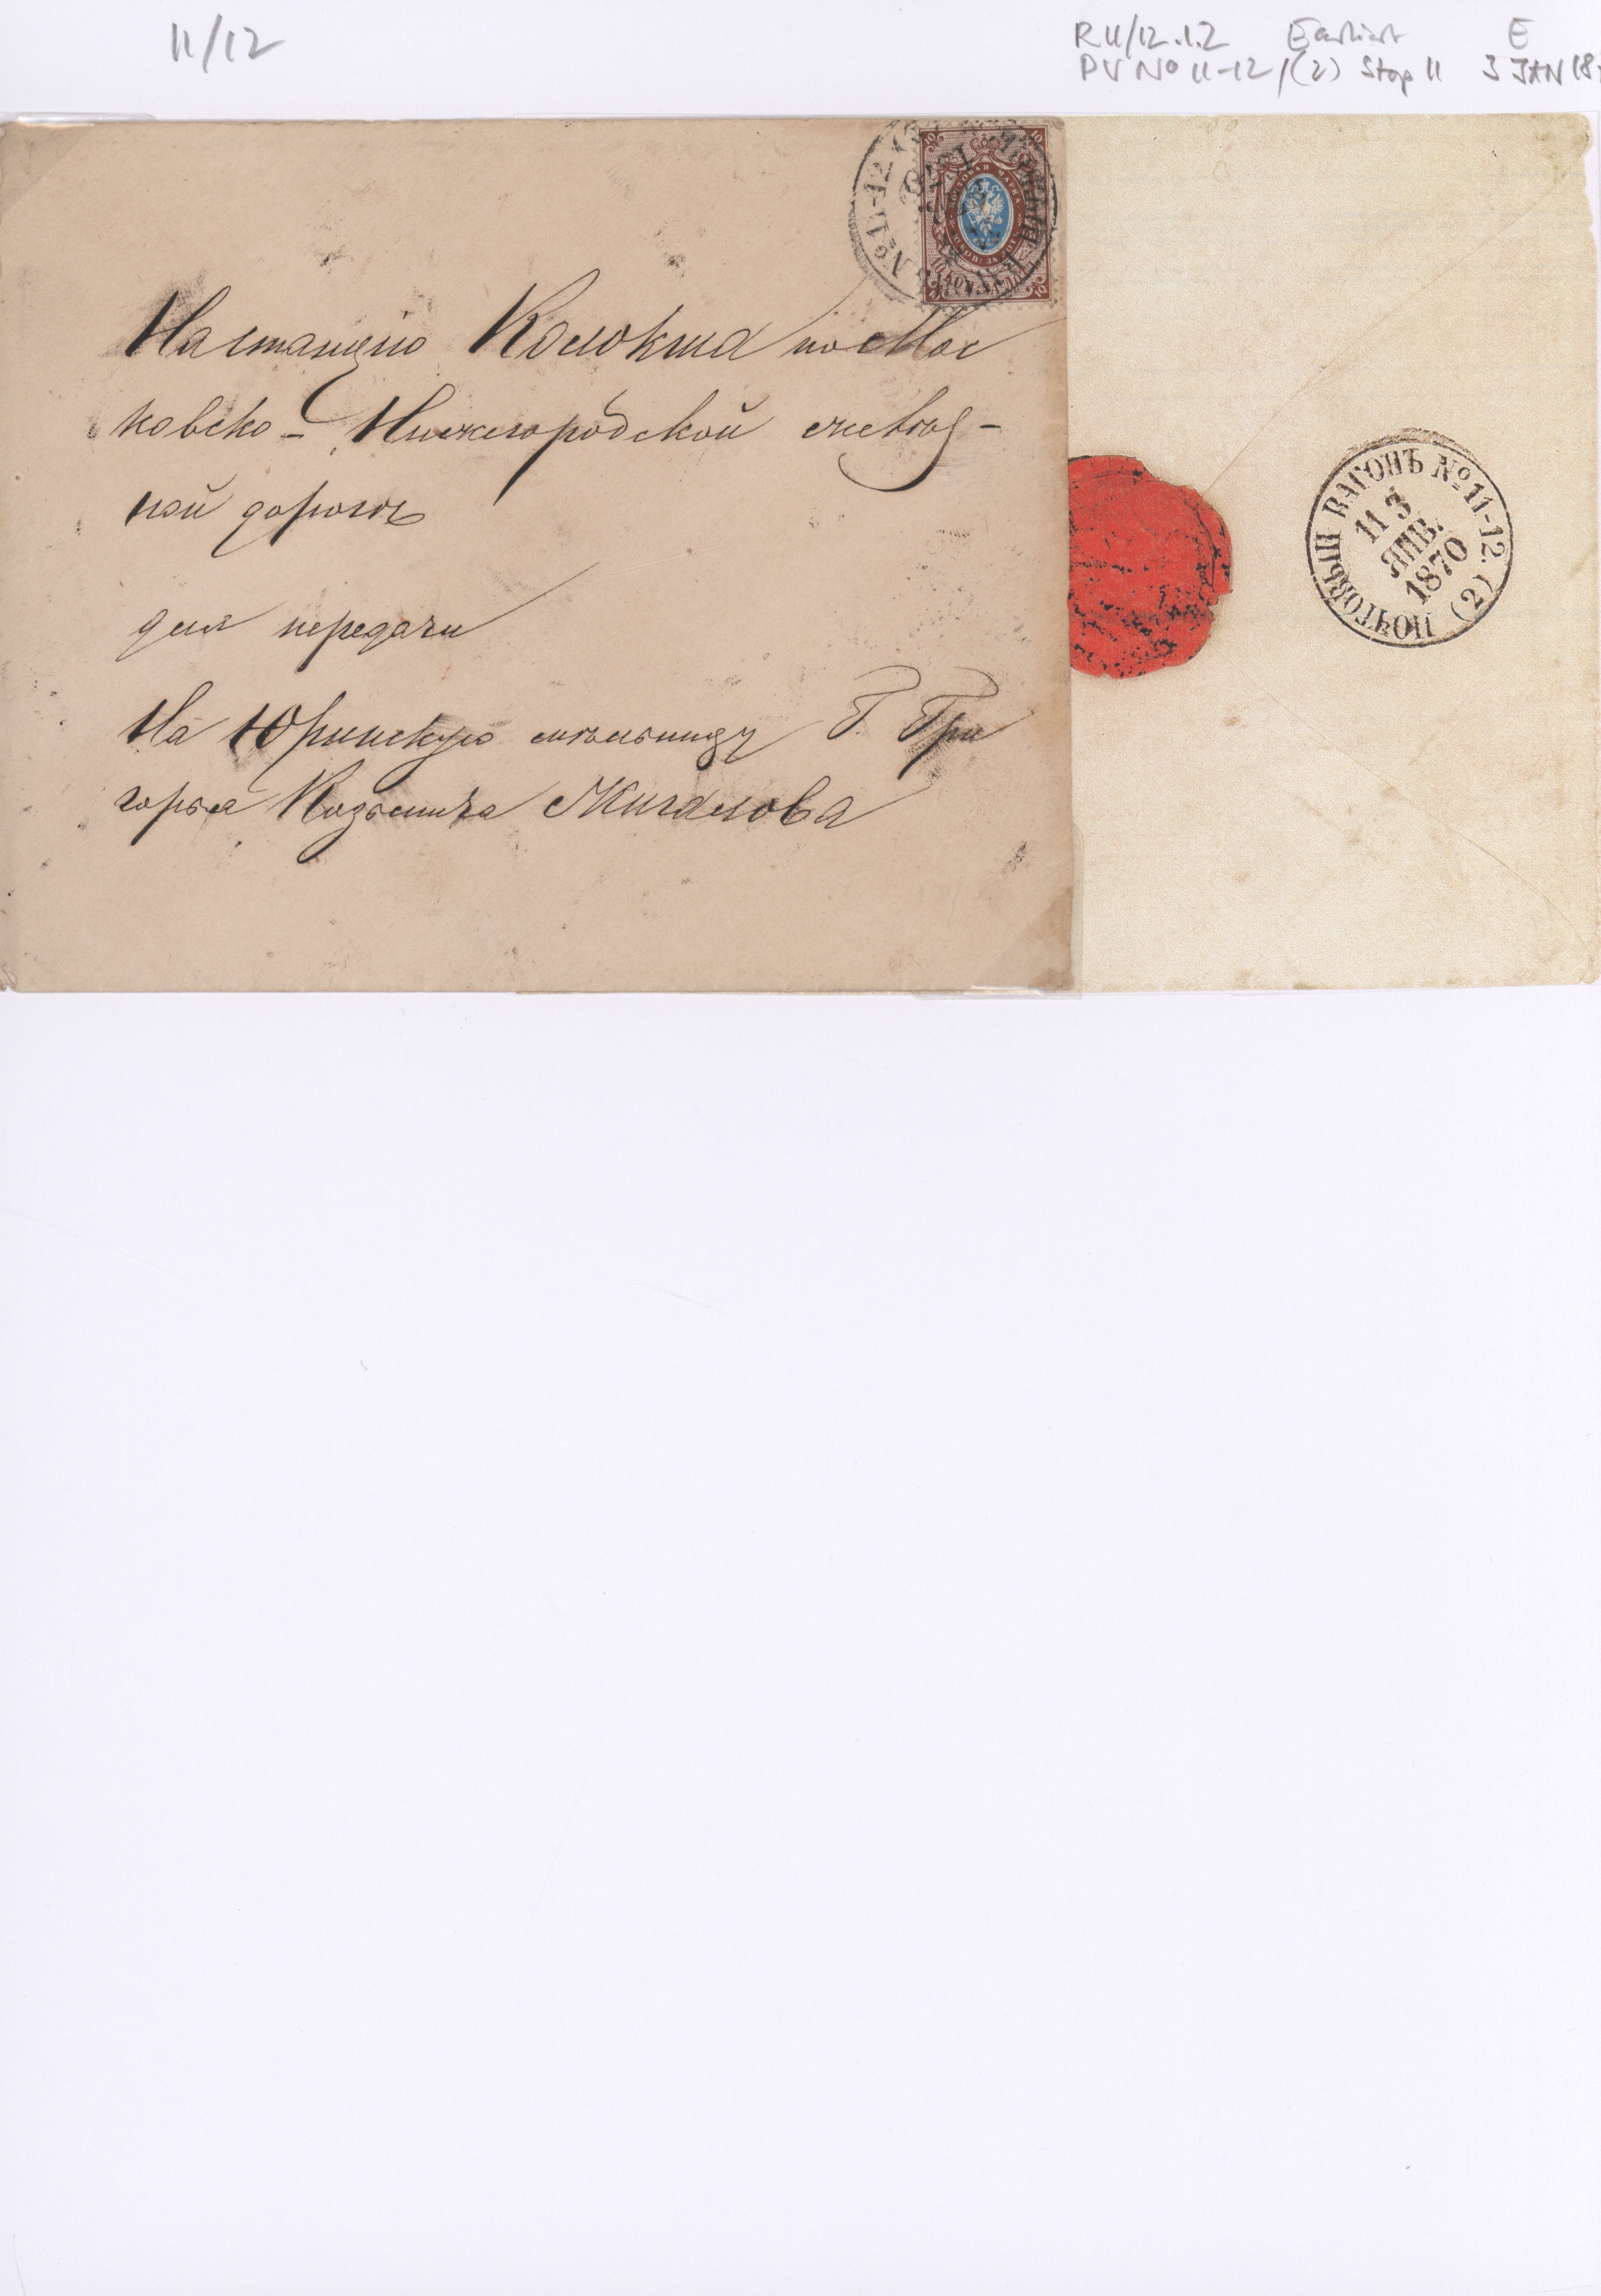 11/12
R 11/12.1.2 Earliest E
PV No 11-12/(2) Stop 11 3 JAN 18
На станцію Колокша по Мос
ковско-Нижегородской желѣз-
ной дорогѣ
для передачи
На Юринскую мѣльницу Г. Гри
горья Козьмича Жигалова
№11-12
1870
ПОЧТОВАЯ МАРКА
10
ПОЧТОВЫЙ ВАГОНЪ №11-12. (2)
11 3
ЯНВ.
1870